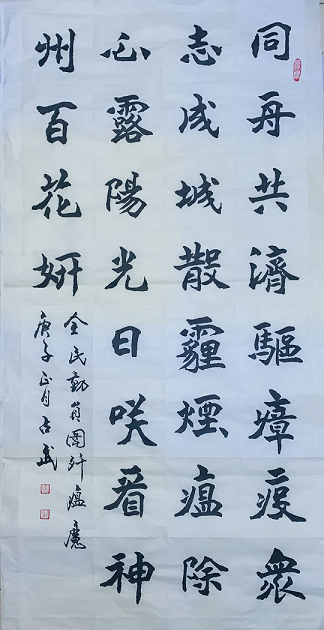 同舟共濟驅瘴疫衆
志成城散霾煙瘟除
心露陽光日咲看神
州百花妍
全民動員圍歼瘟魔
庚子正月